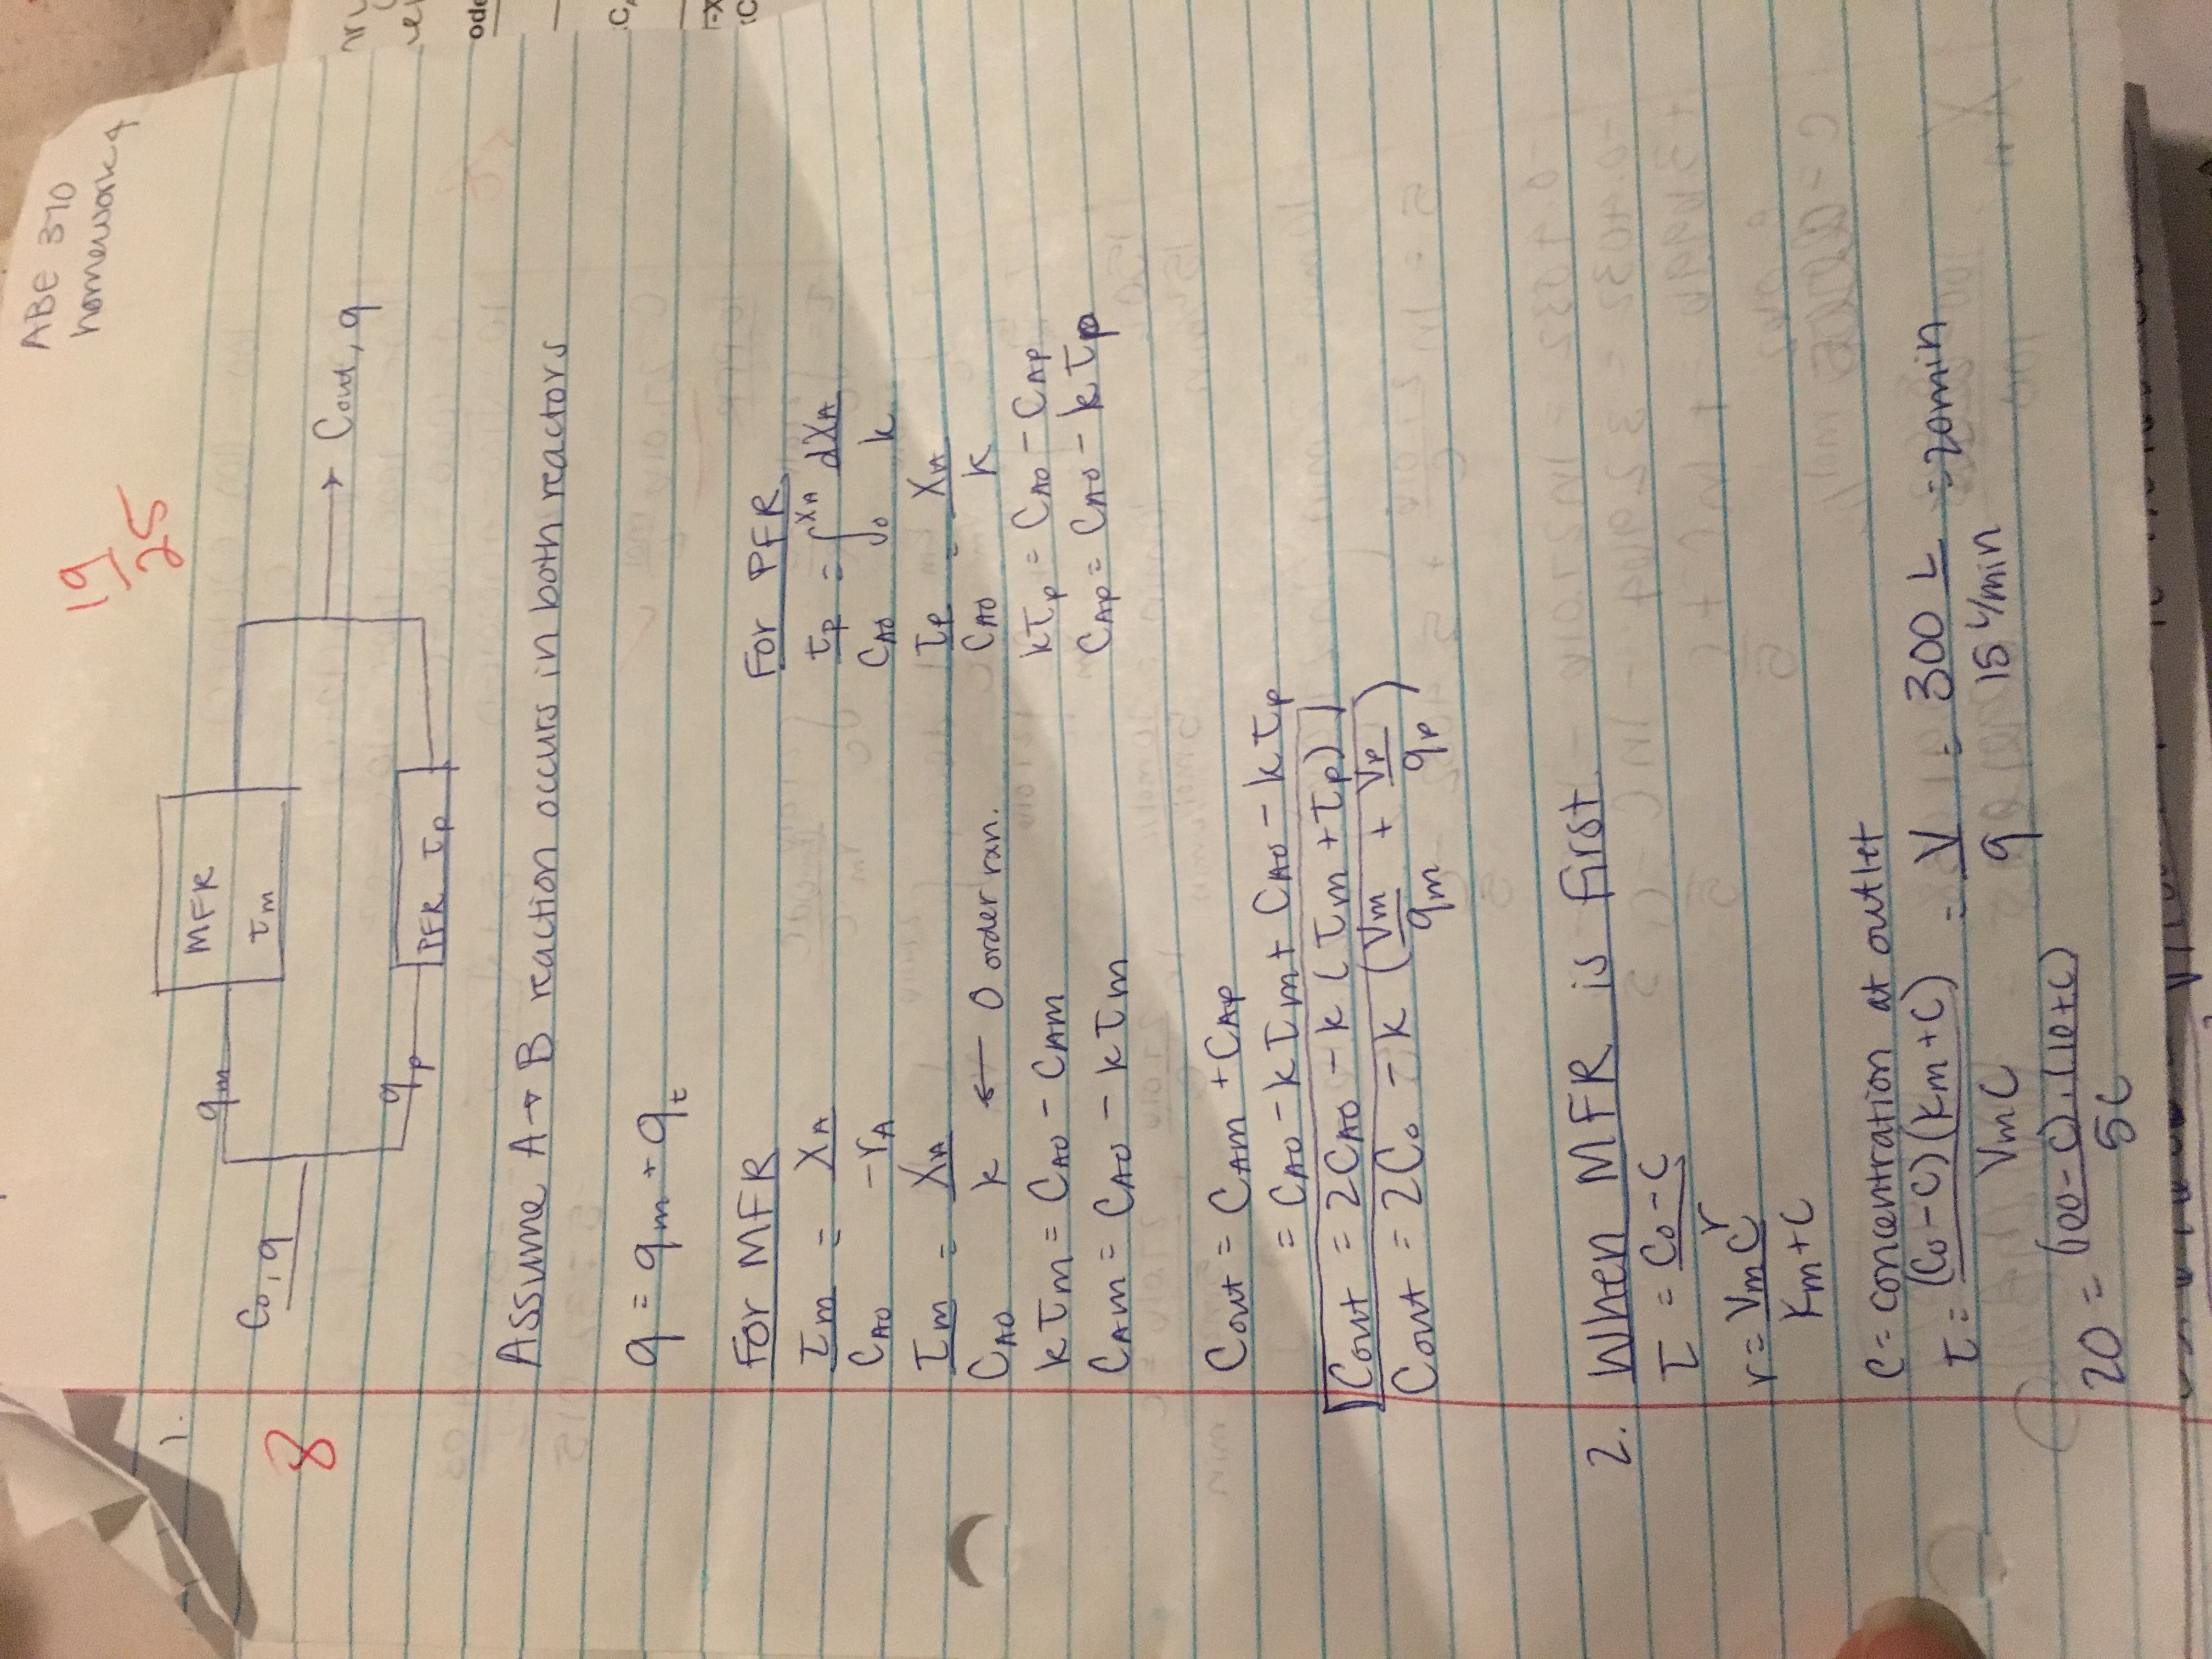 ABE 370
homework 4
19/25
1.
8
MFR
τm
qm
C0, q
Cout, q
qp
PFR τp
Assume A → B reaction occurs in both reactors
q = qm + qt
For MFR
τm/CAO = XA/-rA
τm/CAO = XA/k ← 0 order rxn.
kτm = CAO - CAm
CAm = CAO - kτm
For PFR
τp/CAO = ∫0^XA dXA/k
τp/CAO = XA/k
kτp = CAO - CAp
CAp = CAO - kτp
Cout = CAm + CAp
= CAO - kτm + CAO - kτp
Cout = 2CAO - k(τm + τp)
Cout = 2C0 - k(Vm/qm + Vp/qp)
2. When MFR is first
τ = C0-C/r
r = VmC/Km+C
C = concentration at outlet
τ = (C0-C)(Km+C)/VmC = V/q = 300 L/15 L/min = 20min
20 = (100-C)·(10+C)/5C
ode